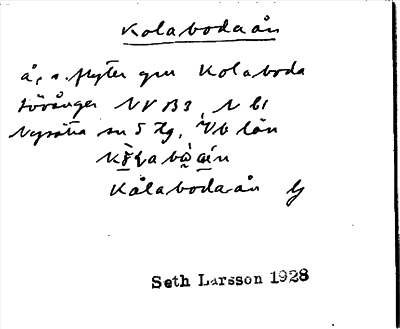 Kolabodaån
å, s. flyter gm Kolaboda
Lövånger NV B3, N bl
Nysätra sn 5 Hg, Vb län
Kålabodaån
Seth Larsson 1928